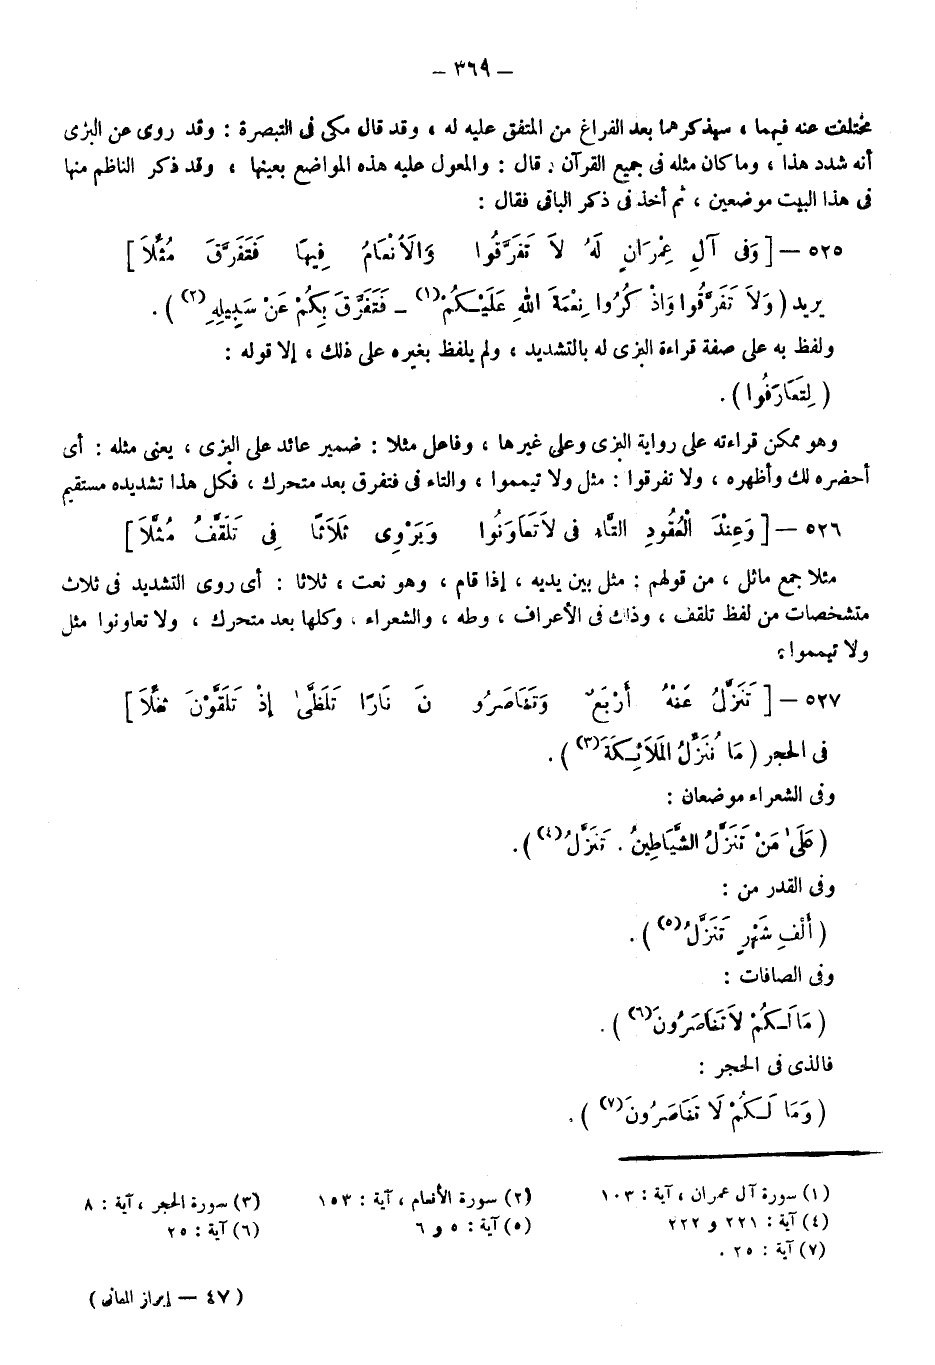 — ٣٦٩ —
مختلف عنه فيهما ، سيذكرهما بعد الفراغ من المتفق عليه له ، وقد قال مكى فى التبصرة : وقد روى عن البزى
أنه شدد هذا ، وما كان مثله فى جميع القرآن . قال : والمعول عليه هذه المواضع بعينها ، وقد ذكر الناظم منها
فى هذا البيت موضعين ، ثم أخذ فى ذكر الباقى فقال :
٥٢٥ — [ وَفى آلِ عِمْرَانٍ لَهُ لاَ تَفَرَّقُوا وَالأَنْعَامُ فِيهَا فَتَفَرَّقَ مُثِّلَا ]
يريد ( وَلاَ تَفَرَّقُوا وَاذْكُرُوا نِعْمَةَ اللهِ عَلَيْكُمْ(١) ــ فَتَفَرَّقَ بِكُمْ عَنْ سَبِيلِهِ(٢) ) .
ولفظ به على صفة قراءة البزى له بالتشديد ، ولم يلفظ بغيره على ذلك ، إلا قوله :
( لِتَعَارَفُوا ) .
وهو ممكن قراءته على رواية البزى وعلى غيرها ، وفاعل مثلا : ضمير عائد على البزى ، يعنى مثله : أى
أحضره لك وأظهره ، ولا تفرقوا : مثل ولا تيمموا ، والتاء فى فتفرق بعد متحرك ، فكل هذا تشديده مستقيم
٥٢٦ — [ وَعِنْدَ الْعُقُودِ التَّاءُ فى لاَتَعَاوَنُوا وَيَرْوِى ثَلَاثًا فِى تَلَقَّفُ مُثَّلَا ]
مثلا جمع ماثل ، من قولهم : مثل بين يديه ، إذا قام ، وهو نعت ، ثلاثا : أى روى التشديد فى ثلاث
متشخصات من لفظ تلقف ، وذلك فى الأعراف ، وطه ، والشعراء ، وكلها بعد متحرك ، ولا تعاونوا مثل
ولا تيمموا ؛
٥٢٧ — [ تَنَزَّلُ عَنْهُ أَرْبَعٌ وَتَنَاصَرُو نَ نَارًا تَلَظَّى إِذْ تَلَقَّوْنَ ثُقِّلَا ]
فى الحجر ( مَا نُنَزِّلُ المَلَائِكَةَ(٣) ) .
وفى الشعراء موضعان :
( عَلَى مَنْ تَنَزَّلُ الشَّيَاطِينُ . تَنَزَّلُ(٤) ) .
وفى القدر من :
( أَلْفِ شَهْرٍ تَنَزَّلُ(٥) ) .
وفى الصافات :
( مَا لَكُمْ لاَ تَنَاصَرُونَ(٦) ) .
فالذى فى الحجر :
( وَمَا لَكُمْ لَا تَنَاصَرُونَ(٧) ) .
(١) سورة آل عمران ، آية : ١٠٣ (٢) سورة الأنعام ، آية : ١٥٣ (٣) سورة الحجر ، آية : ٨
(٤) آية : ٢٢١ و ٢٢٢ (٥) آية : ٥ و ٦ (٦) آية : ٢٥
(٧) آية : ٢٥ .
( ٤٧ — إبراز المعانى )